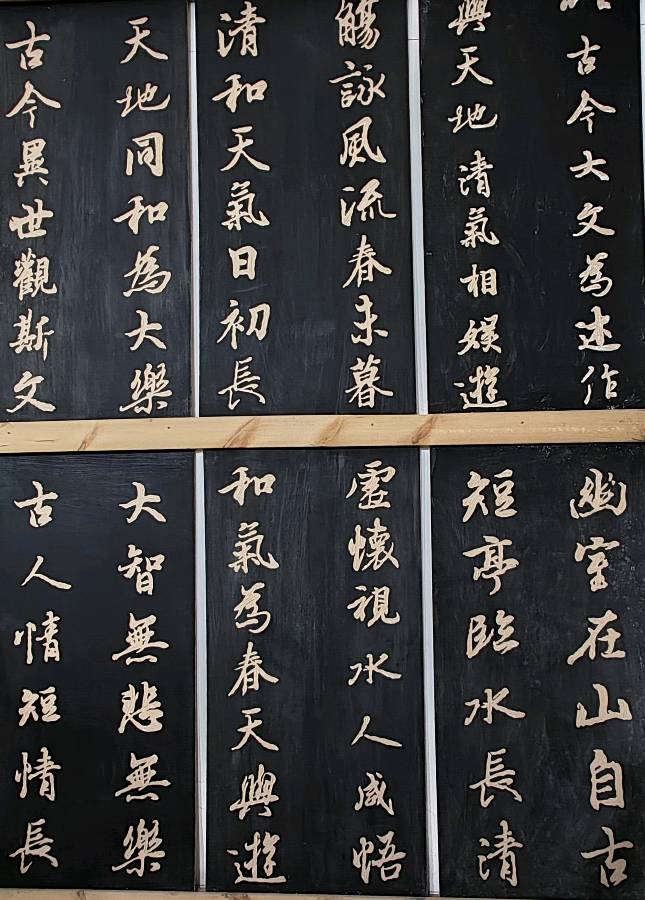 古今大文為述作
與天地清氣相娛遊
觴詠風流春未暮
清和天氣日初長
天地同和為大樂
古今異世觀斯文
幽室在山自古
短亭臨水長清
虛懷視水人咸悟
和氣為春天與遊
大智無悲無樂
古人情短情長